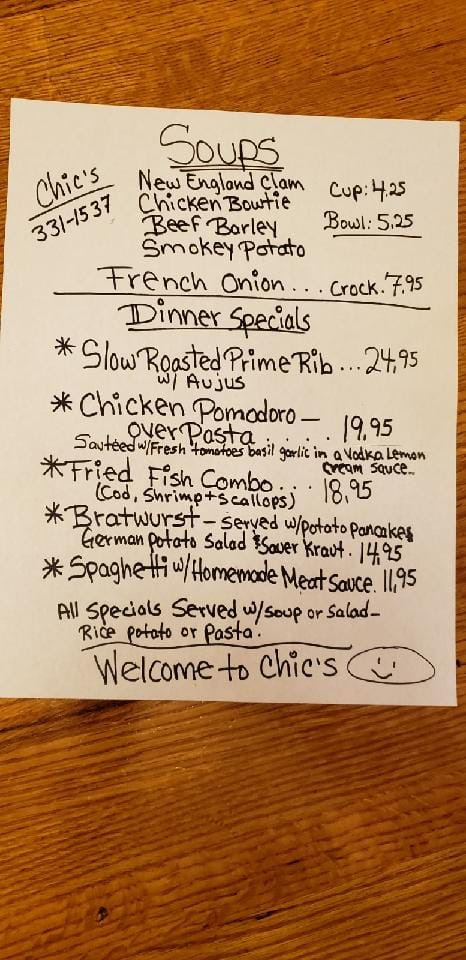 Soups
Chic's
331-1537
New England Clam
Chicken Bowtie
Beef Barley
Smokey Potato
Cup: 4.25
Bowl: 5.25
French Onion... Crock. 7.95
Dinner Specials
* Slow Roasted Prime Rib ... 24.95
w/ Aujus
* Chicken Pomodoro —
over Pasta . . . . . 19.95
Sautéed w/Fresh tomatoes basil garlic in a Vodka Lemon
Cream Sauce..
* Fried Fish Combo... 18.95
(Cod, Shrimp + Scallops)
* Bratwurst - Served w/potato pancakes
German Potato Salad & Sauer Kraut. 14.95
* Spaghetti w/Homemade Meat Sauce. 11.95
All Specials Served w/soup or salad-
Rice potato or Pasta.
Welcome to Chic's